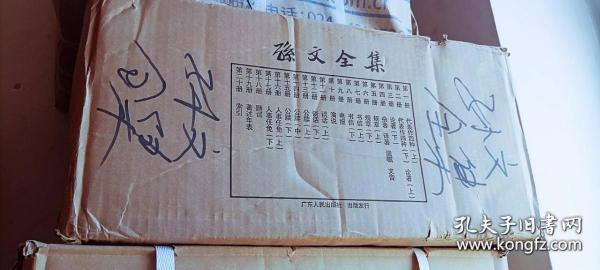 电话:024
孫文全集
第一册 代表作四种(上)
第二册 代表作四种(下) 论著(上)
第三册 论著(下)
第四册 杂著 译著 文告
第五册 规章(上)
第六册 规章(下)
第七册 书信(上)
第八册 书信(下)
第九册 电报
第十册 演说
第十一册 谈话(上)
第十二册 谈话(下)
第十三册 公牍(上)
第十四册 公牍(中)
第十五册 公牍(下)
第十六册 人事任免(上)
第十七册 人事任免(下)
第十八册 题词
第十九册 著述年表
第二十册 索引
广东人民出版社 出版发行
孙文
全集
孔夫子旧书网
www.kongfz.com